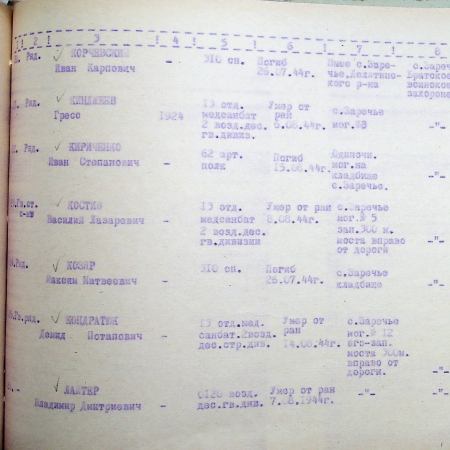 1 ! 2 ! 3 ! 4 ! 5 ! 6 ! 7 ! 8
Ряд. ✓ КОРЧЕВСКИЙ 310 сп. Погиб Ныне с.Заре- с.Заречье
Иван Карпович 26.07.44г. чье,Делятинс- Братское
кого р-на воинское
захоронен
Ряд. ✓ Гресс 1924 13 отд. Умер от с.Заречье
медсанбат ран мог.
2 возд.дес. 6.08.44г. -"-
гв.дивиз.
Ряд. ✓ КИРИЧЕНКО 62 арт. Погиб Одиночн.
Иван Степанович - полк 15.08.44г. мог.на
кладбище -"-
с.Заречье.
Гв.ст. ✓ КОСТИВ 13 отд. Умер от ран с.Заречье
с-нт Василий Лазаревич - медсанбат 8.08.44г. мог.№ 5
2 возд.дес. зап.300 м.
гв.дивизии моста вправо -"-
от дороги
Ряд. ✓ КОЗЯР 310 сп. Погиб с.Заречье
Максим Матвеевич - 26.07.44г. кладбище -"-
Гв.ряд. ✓ КОНДРАТЮК 13 отд.мед. Умер от с.Заречье
Демид Потапович - санбат.2возд. ран мог.№ 12
дес.стр.див. 14.08.44г. юго-зап.
моста 300м.
вправо от
дороги. -"-
-"- ✓ ЛАПТЕР 0120 возд. Умер от ран -"- -"-
Владимир Дмитриевич - дес.гв.див. 7.08.1944г.